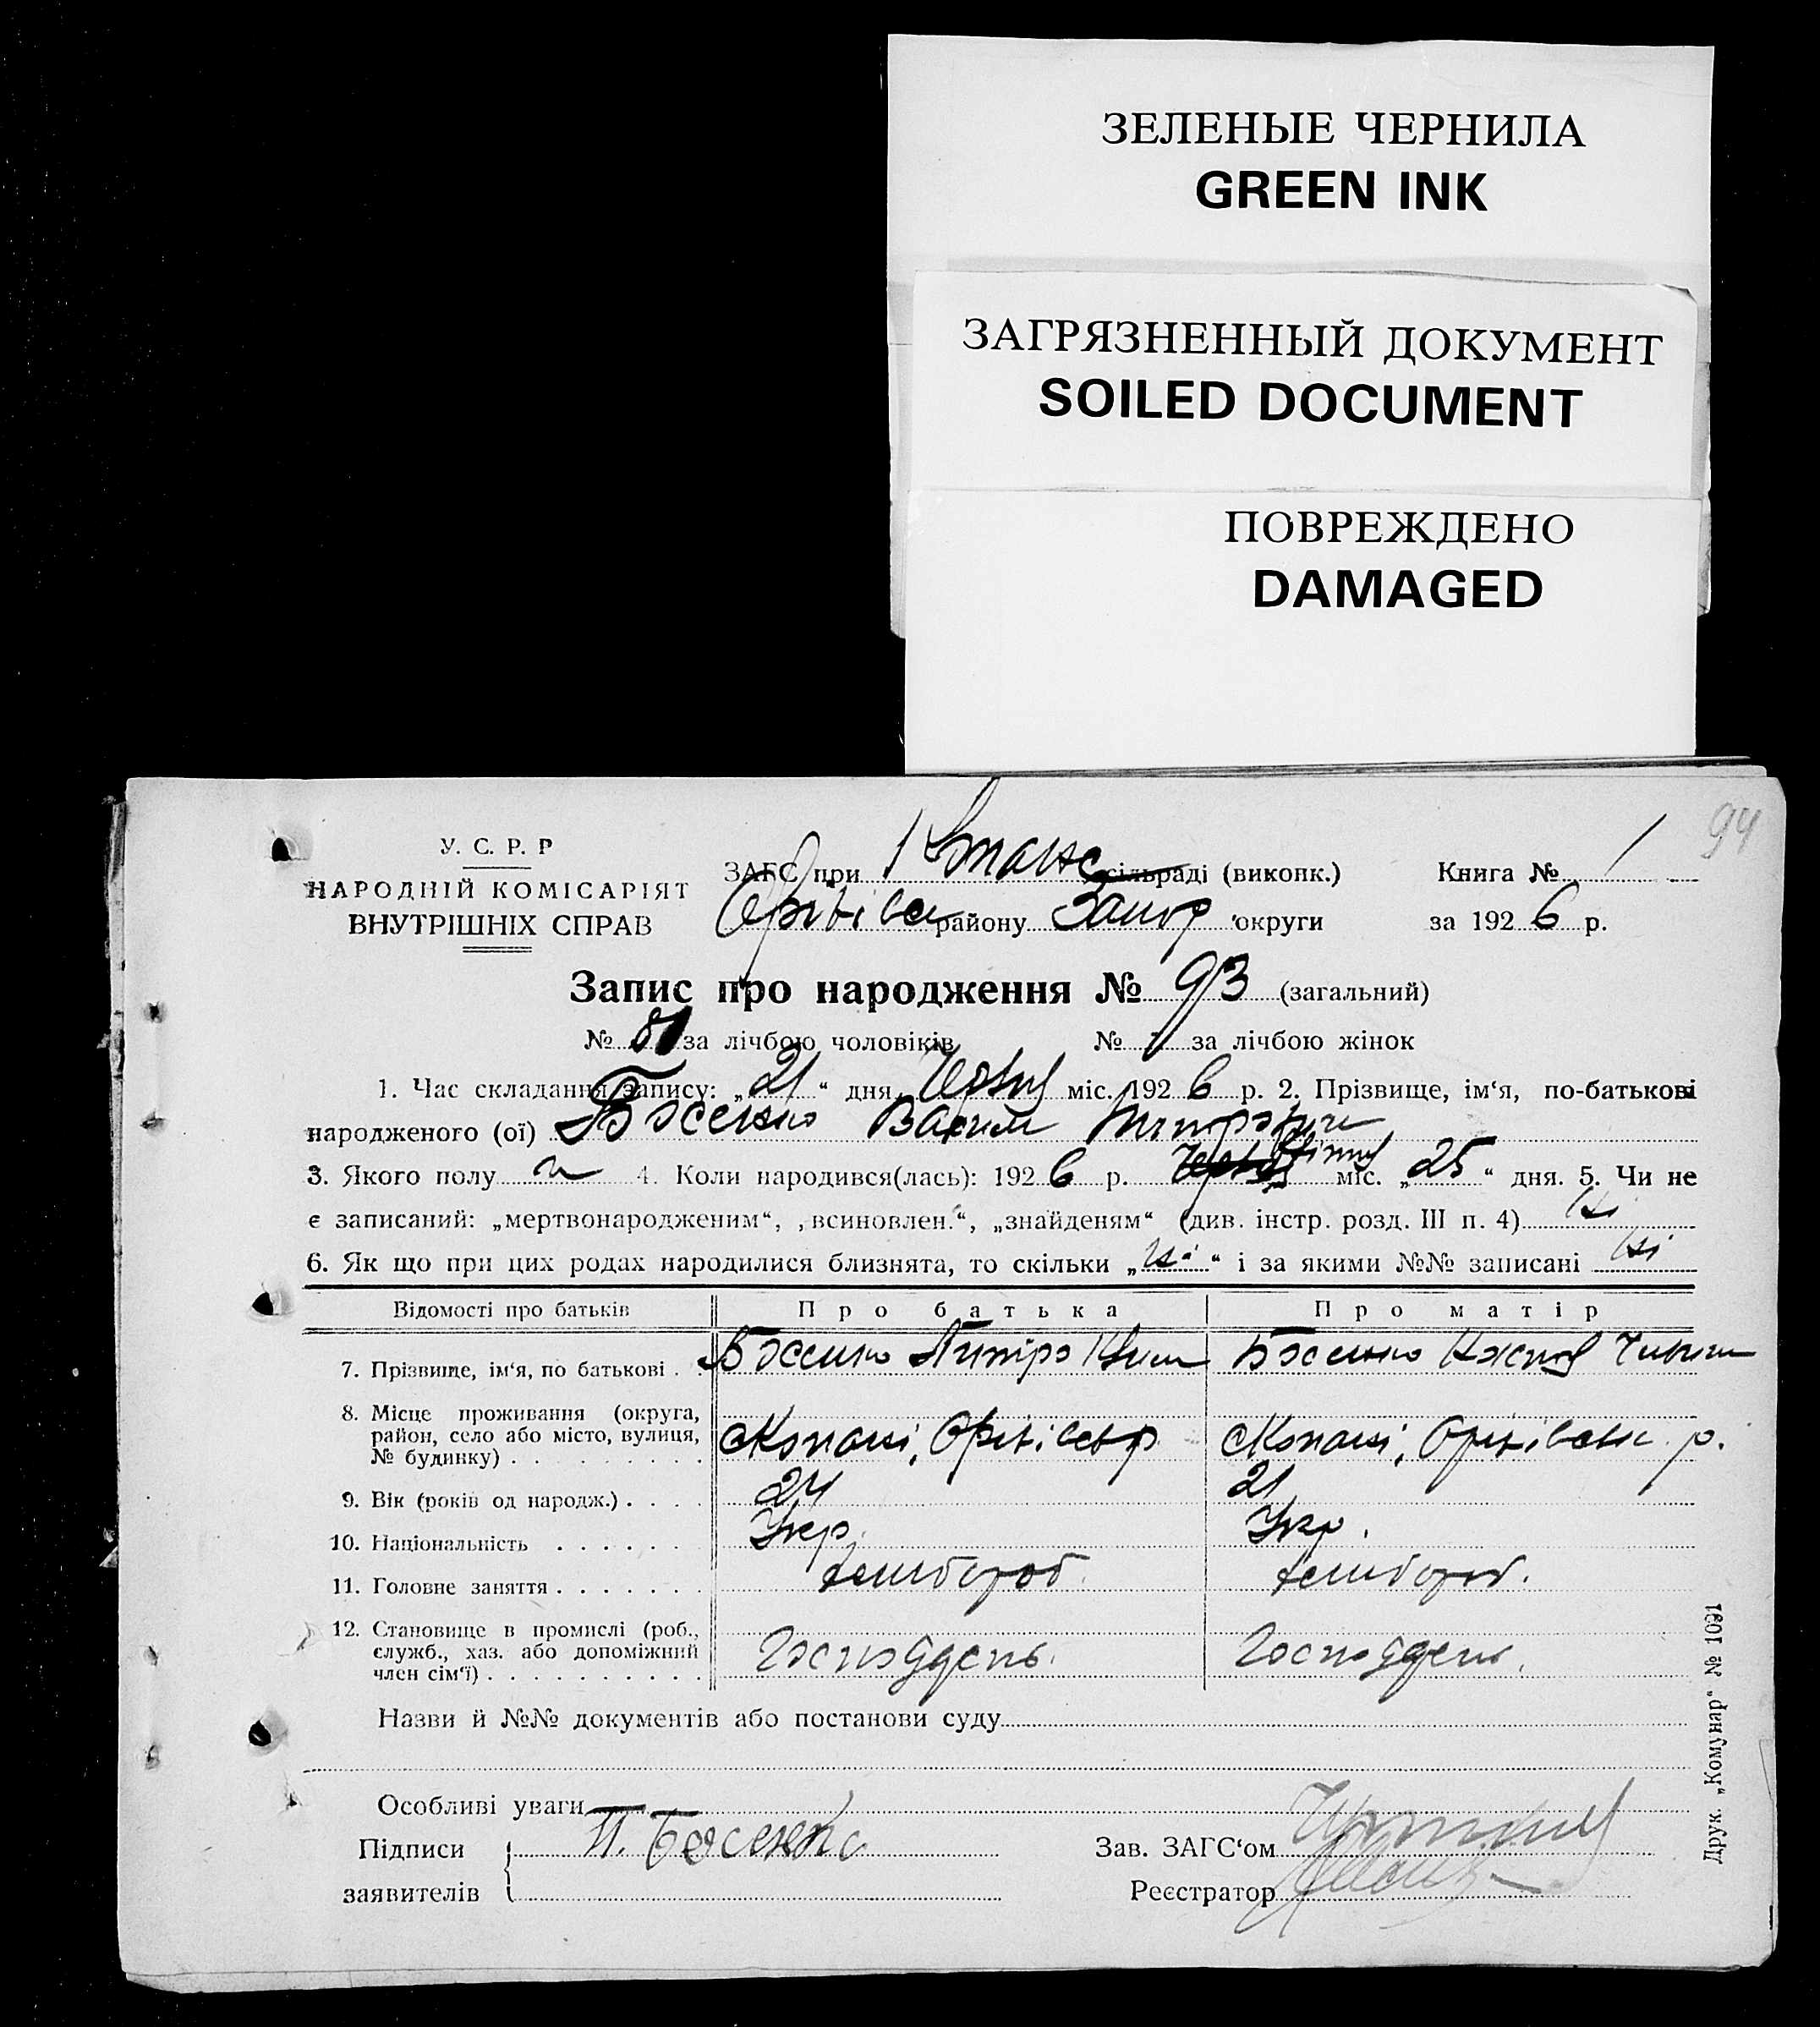 ЗЕЛЕНЫЕ ЧЕРНИЛА
GREEN INK
ЗАГРЯЗНЕННЫЙ ДОКУМЕНТ
SOILED DOCUMENT
ПОВРЕЖДЕНО
DAMAGED
94
У. С. Р. Р
НАРОДНІЙ КОМІСАРІЯТ
ВНУТРІШНІХ СПРАВ
ЗАГС при сільраді (викопк.) Книга № 1
району Запор округи за 1926 р.
Запис про народження № 93 (загальний)
№ за лічбою чоловіків № за лічбою жінок
1. Час складання запису: „21“ дня міс. 1926 р. 2. Прізвище, ім‘я, по-батькові
народженого (ої) Босенко
3. Якого полу ч 4. Коли народився(лась): 1926 р. міс. „25“ дня. 5. Чи не
є записаний: „мертвонародженим“, „всиновлен.“, „знайденям“ (див. інстр. розд. III п. 4) Ні
6. Як що при цих родах народилися близнята, то скільки „ні“ і за якими №№ записані Ні
Відомості про батьків Про батька Про матір
7. Прізвище, ім‘я, по батькові . . Босенко Босенко
8. Місце проживання (округа, район, село або місто, вулиця, № будинку) . . . . . . . . . Копані, Оріхівськ р Копані, Оріхівськ. р.
9. Вік (років од народж.) . . . . 24 21
10. Національність . . . . . . Укр. Укр.
11. Головне заняття . . . . . . . хлібороб. хлібороб.
12. Становище в промислі (роб., служб., хаз. або допоміжний член сім‘ї) . . . . . . . . . .
Назви й №№ документів або постанови суду
Особливі уваги
Підписи заявителів П. Босенко
Зав. ЗАГС‘ом
Реєстратор
Друк. „Комунар“ № 1091